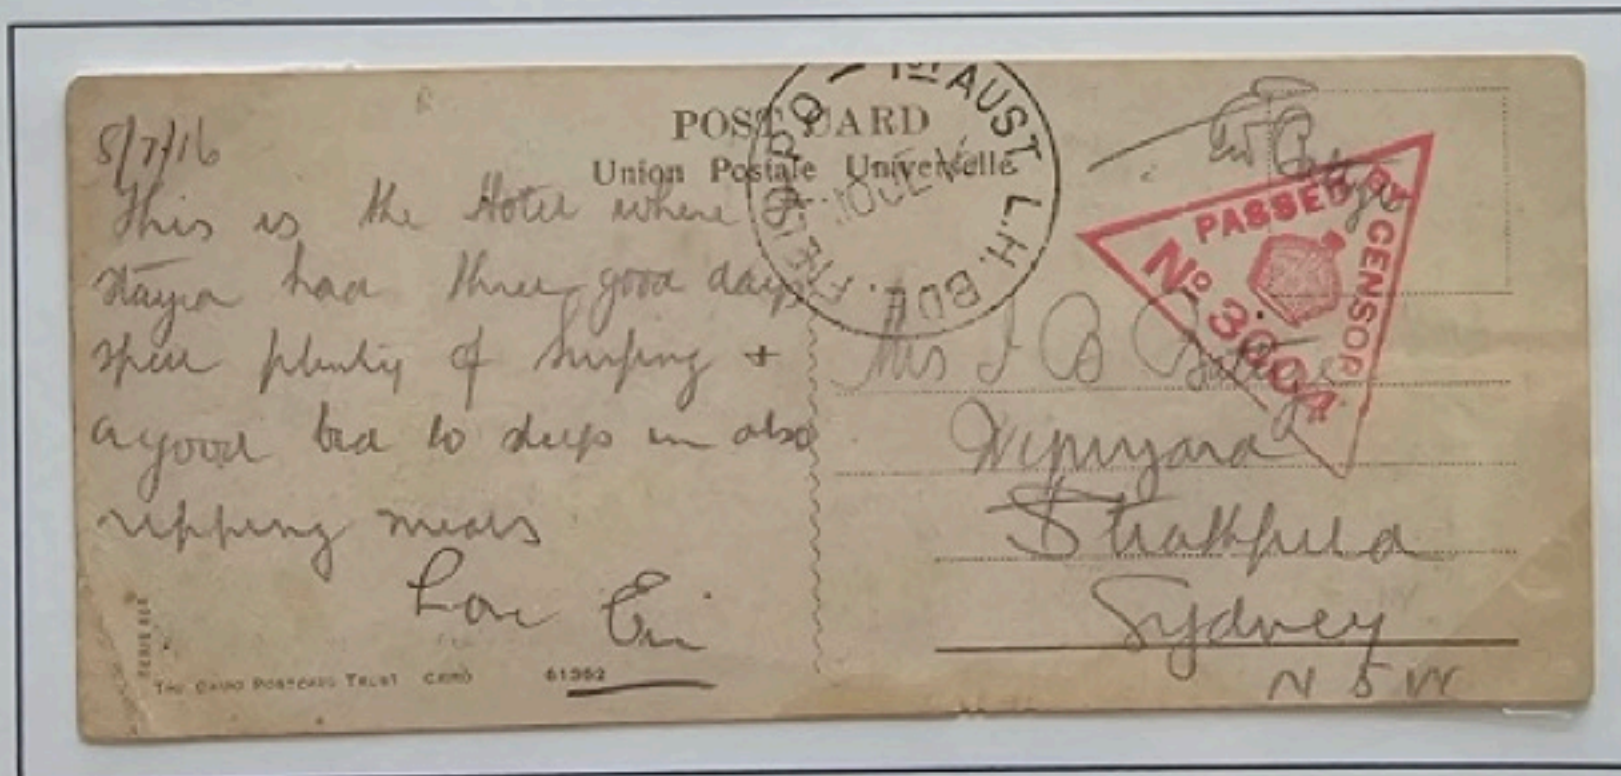 5/7/16
This is the Hotel where I
stayed had three good days
spell plenty of sleeping +
a good bed to sleep in also
ripping meals
Love
POST CARD
Union Postale Universelle
1ST AUST L.H. BDE. FIELD P.O
10 JUL
PASSED BY CENSOR
No 300A
Mrs J B
Strathfield
Sydney
N S W
THE CAIRO POSTCARD TRUST CAIRO
61362